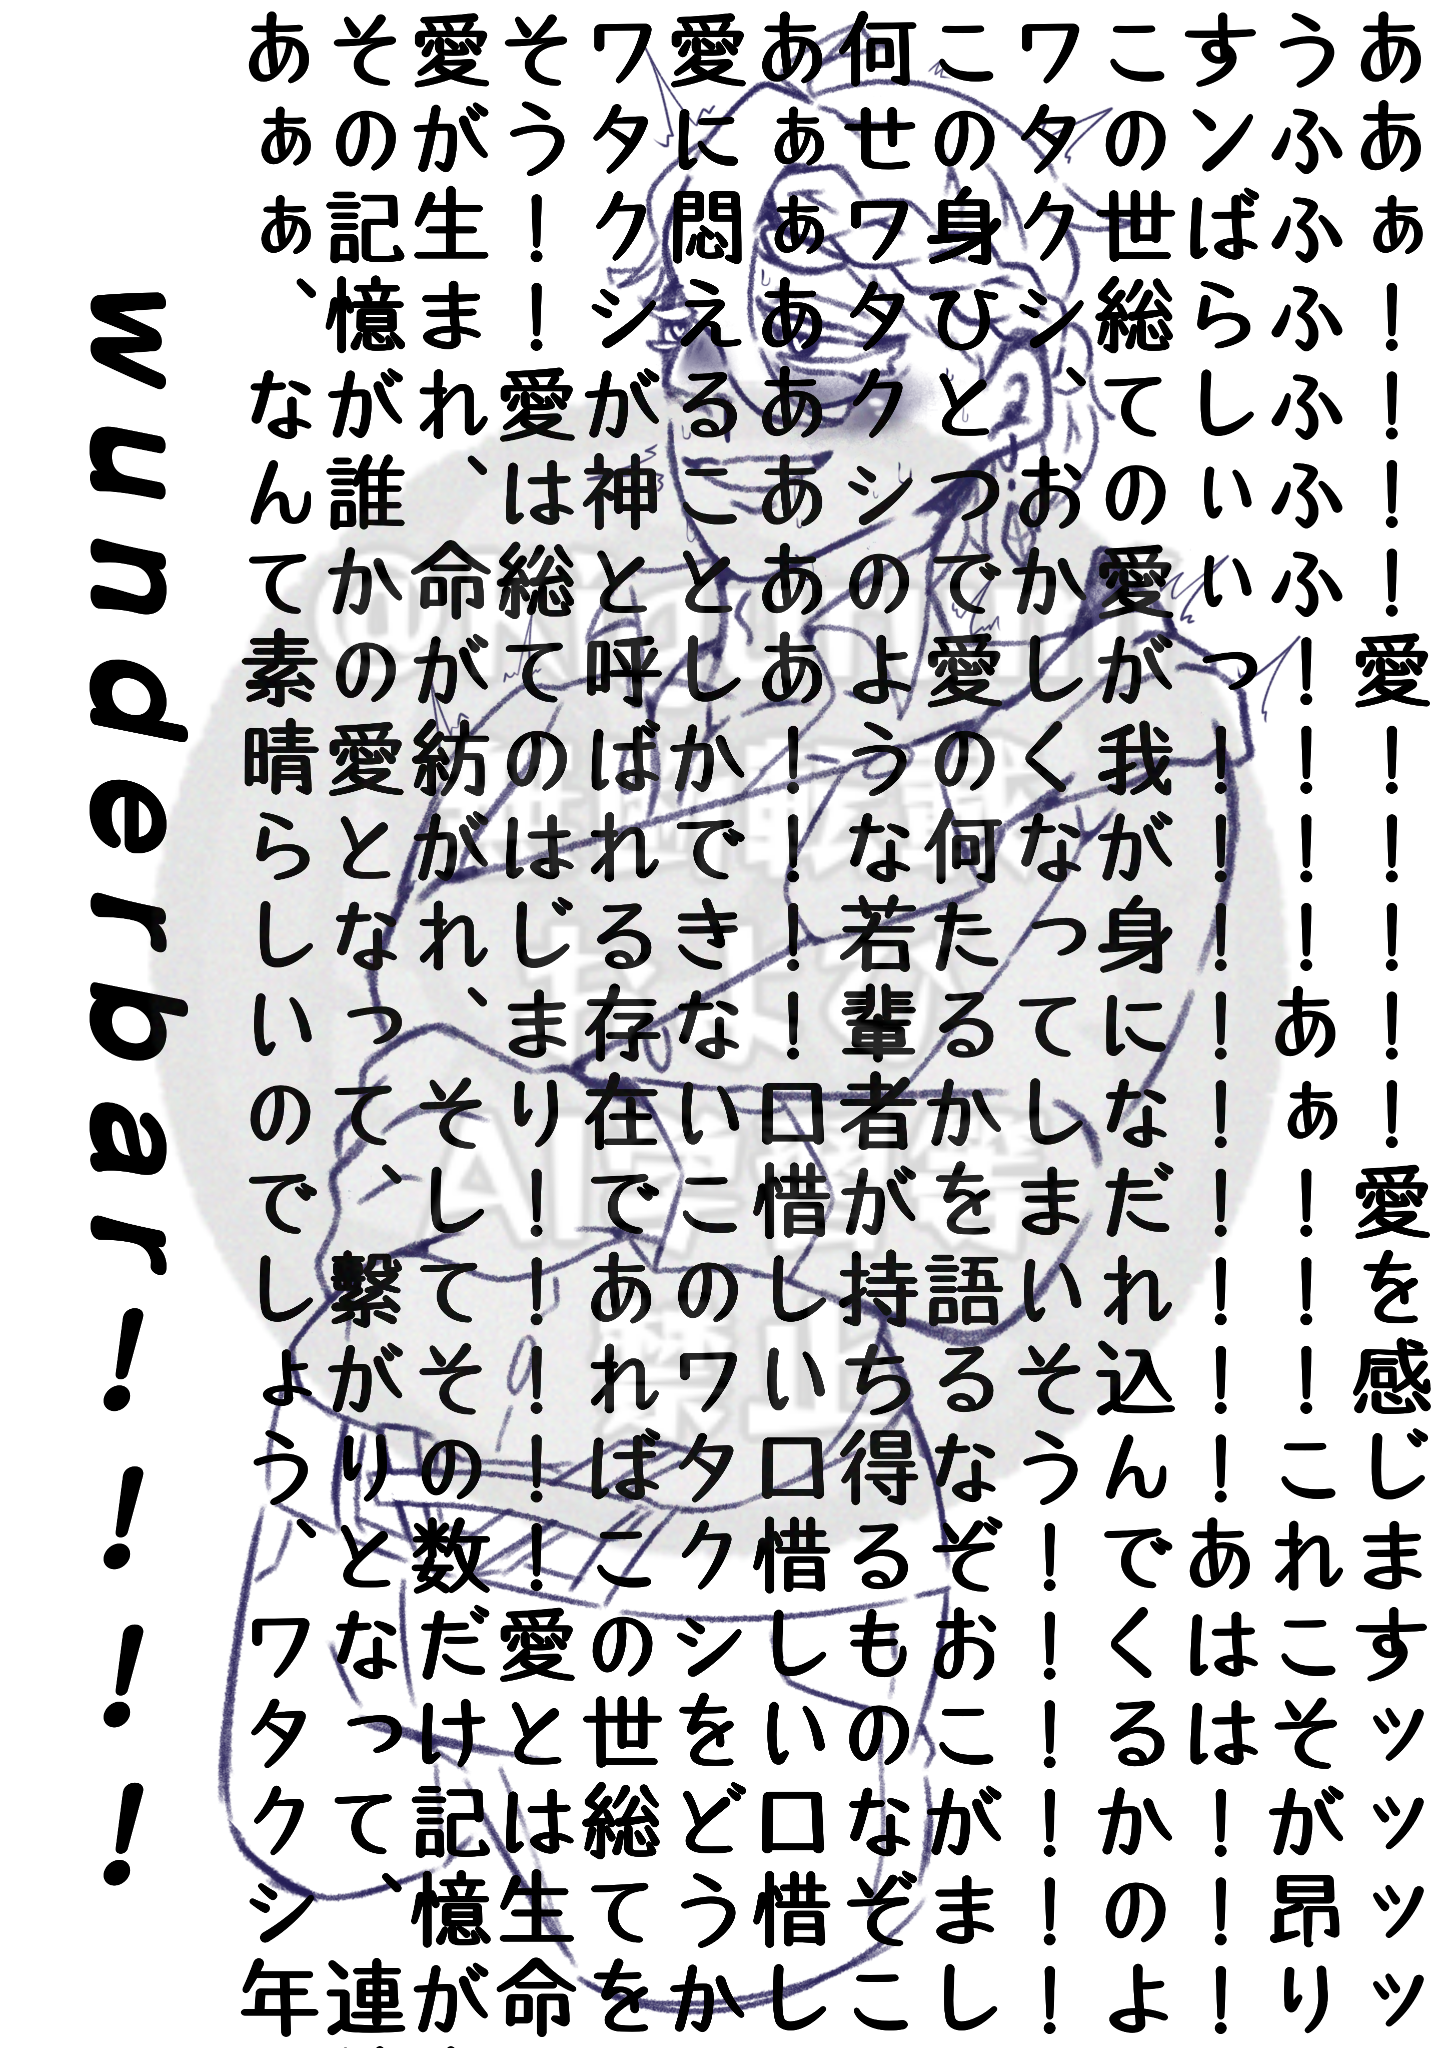 ああぁ！！！！愛！！！！！愛を感じますッッッッ
うふふふふふふ！！！！あぁ！！！これこそが昂り
すンばらしぃぃっ！！！！！！！！！あはは！！！
この世総ての愛が我が身になだれ込んでくるかのよ
ワタクシ、おかしくなってしまいそう！！！！！！
この身ひとつで愛の何たるかを語るなぞおこがまし
何せワタクシのような若輩者が持ち得るものなぞこ
あぁぁあああああ！！！！口惜しい口惜しい口惜し
愛に悶えることしかできないこのワタクシをどうか
ワタクシが神と呼ばれる存在であればこの世総てを
そう！！愛は総てのはじまり！！！！！愛とは生命
愛が生まれ、命が紡がれ、そしてその数だけ記憶が
その記憶が誰かの愛となって、繋がりとなって、連
あぁぁ、なんて素晴らしいのでしょう、ワタクシ年
wunderbar！！！！
無断転載
および
AI学習等
禁止